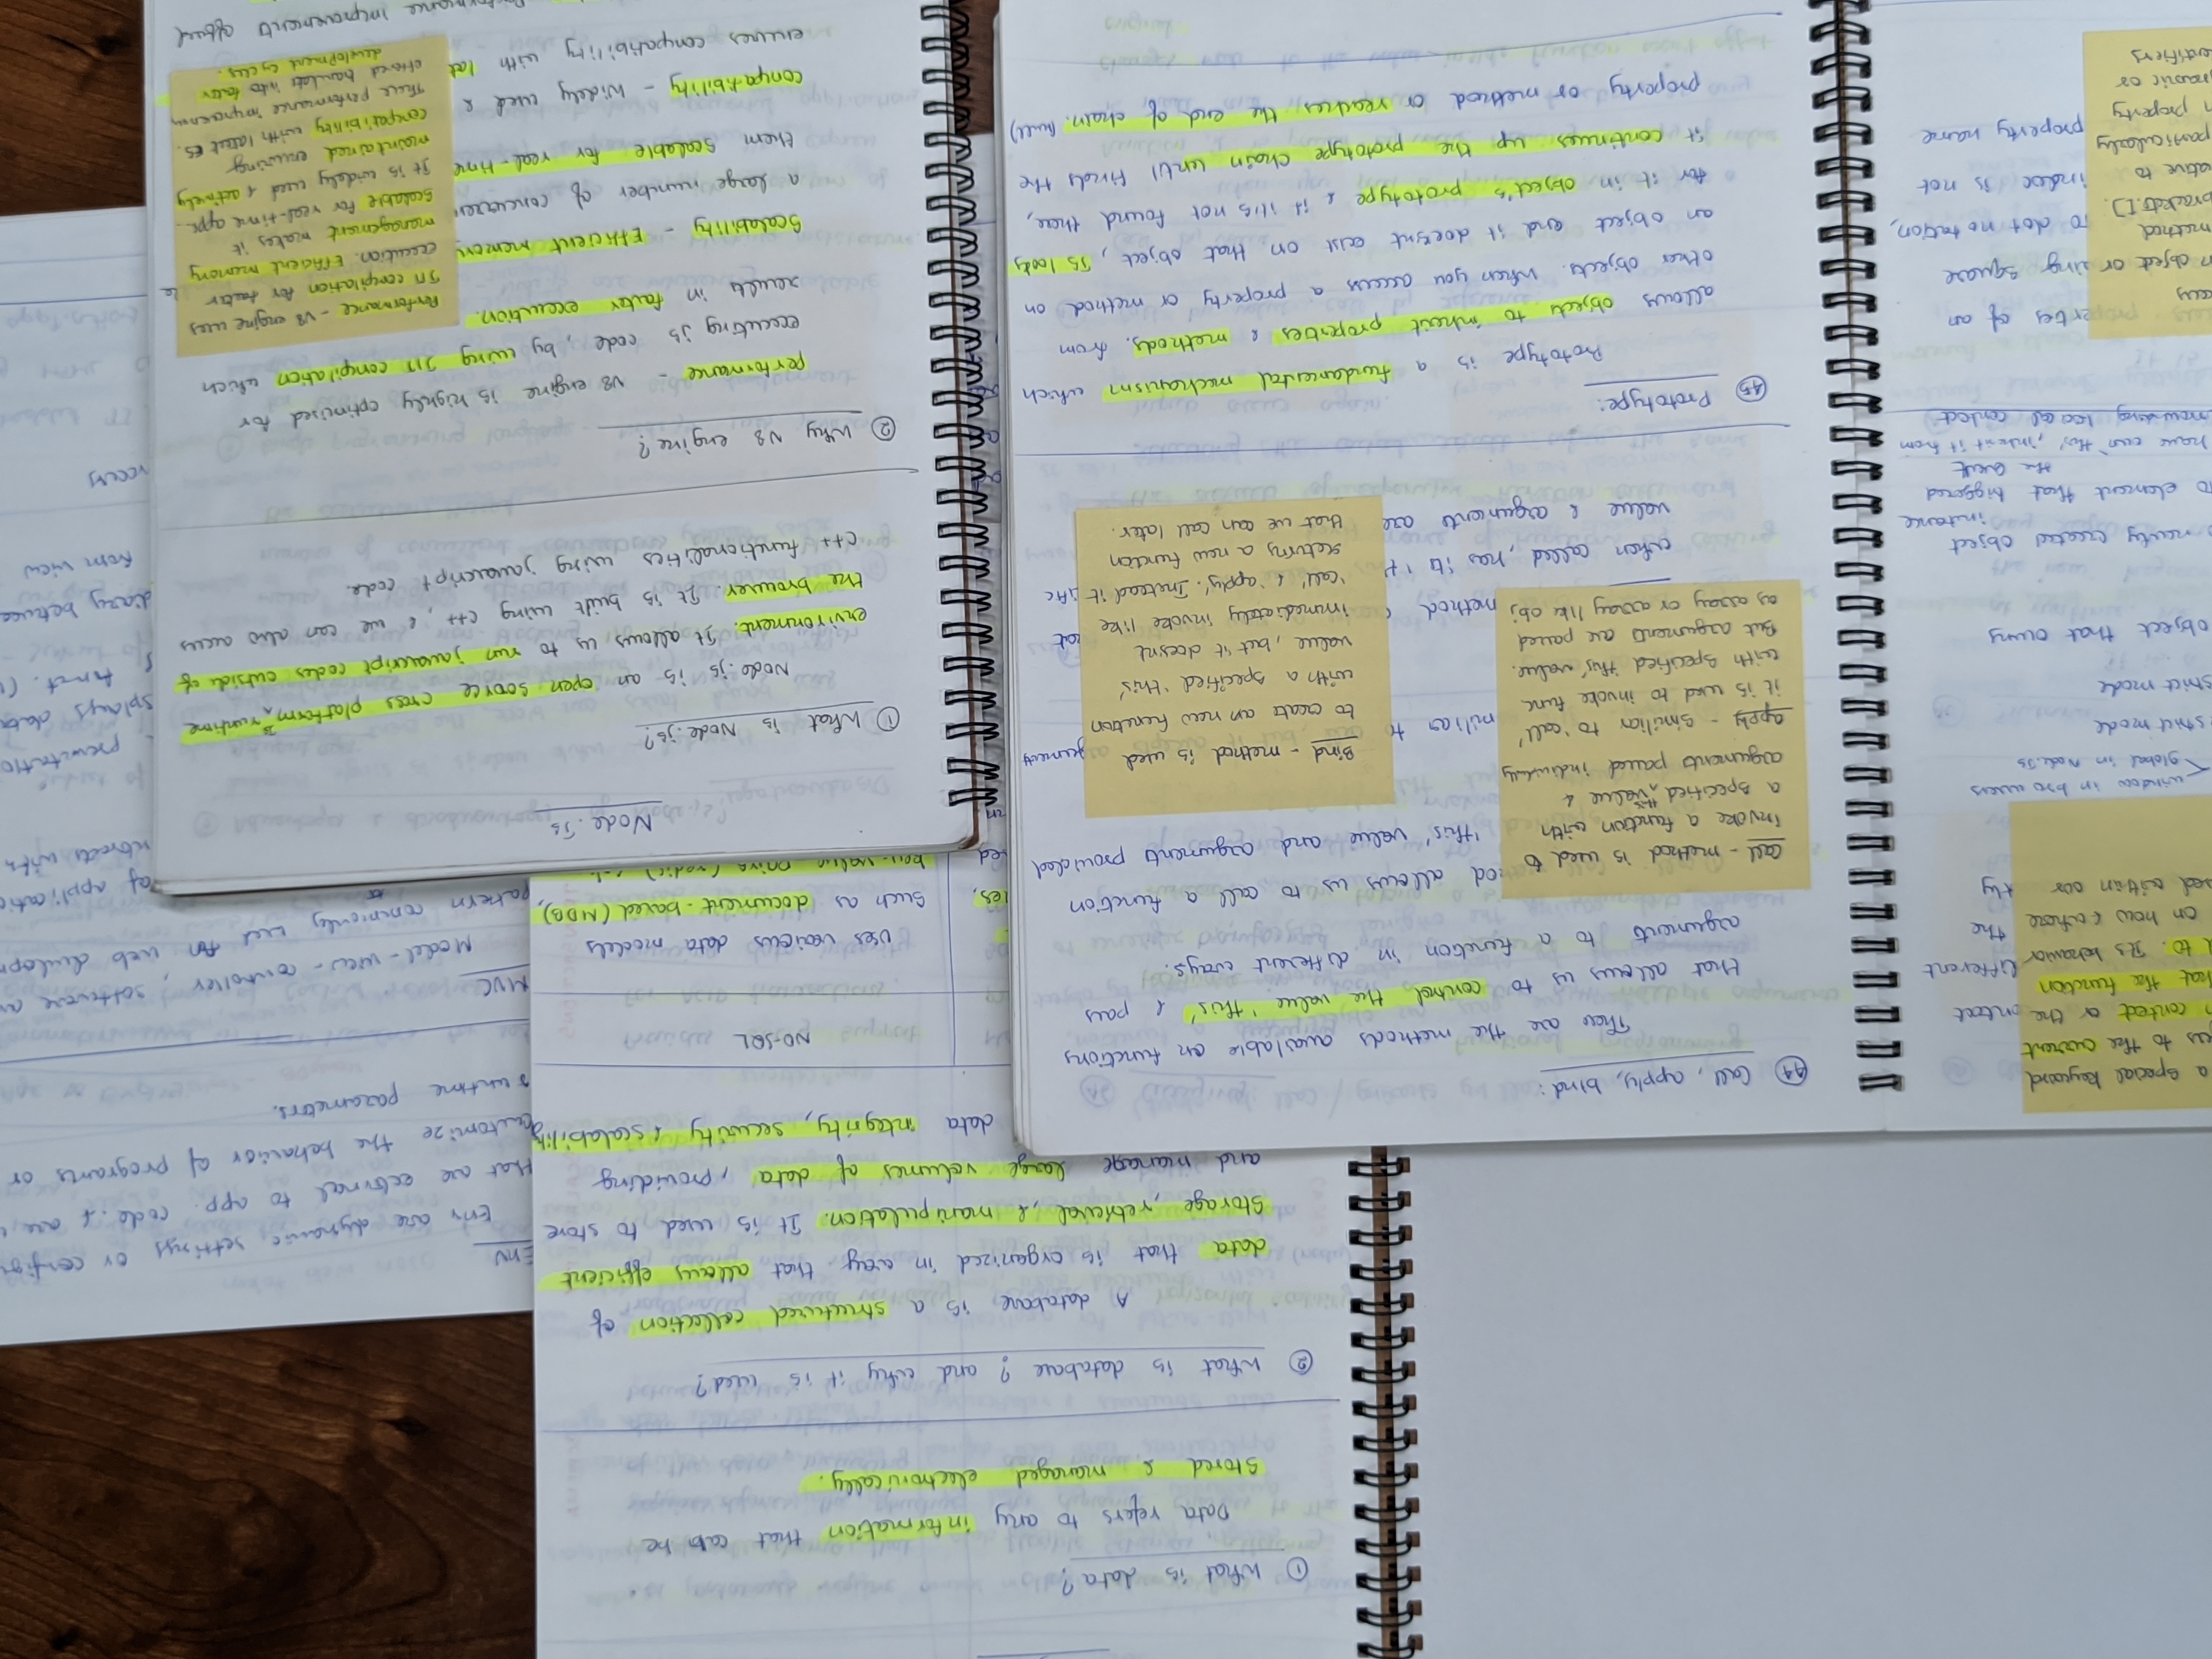 ① What is data?
Data refers to any information that can be
stored & managed electronically.
② What is database ? and why it is used?
A database is a structured collection of
data that is organized in way that allows efficient
storage, retrieval, & manipulation. It is used to store
and manage large volumes of data, providing
data integrity, security & scalability
NO-SQL
Uses various data models
such as document-based (MDB),
ies,
ed
Env
Env are dynamic settings or config
that are external to app. code. & are
customize the behavior of programs or
runtime parameters.
MVC
Model-view-controller, software
pattern commonly used for web develop
of applicatio
nteracts with
splays data
diary between
from view
a special keyword
current
context or the
that the function
d to. Its behavior
on how & where
ontext
different
the
tly
window in browsers
global in Node.Js
strict mode
strict mode
object that owns
newly created object
instance
to element that triggered
the event
have own 'this', inherit it from
lexical context
properties of an
n object or
method
brackets [].
ative to
particularly
n property
entifiers
ing square
to dot notation,
index is not
property name
44 Call, apply, bind:
These are the methods available on functions
that allows us to control the value 'this' & pass
arguments to a function in different ways.
od allows us to call a function
'this' value and arguments provided
miliar to
method
when called, has its
value & arguments are
Call - method is used to
invoke a function with
a specified this value &
arguments passed individually
apply - similiar to 'call'
it is used to invoke func
with specified 'this' value.
But arguments are passed
as array or array like obj
Bind - method is used
to create an new function
with a specified 'this'
value, but it doesnt
immediately invoke like
'call' & 'apply'. Instead it
returns a new function
that we can call later.
45 Prototype:
Prototype is a fundamental mechanism which
allows objects to inherit properties & methods. from
other objects. When you access a property or method on
an object and it doesnt exist on that object, JS looks
for it in object's prototype & if itis not found there,
it continues up the prototype chain until finds the
property or method or reaches the end of chain. (null)
Node.Js
① What is Node.js?
Node.js is an open source cross platform Js runtime
environment. It allows us to run javascript codes outside of
the browser. It is built using C++, & we can also access
C++ functionalities using javascript code.
② Why V8 engine?
performance - V8 engine is highly optimised for
executing js code, by using JIT compilation which
results in faster execution.
Scalability - Efficient memory
a large number of concurren
them scalable for real-time
compatibility - Widely used &
ensures compatibility with lat
Performance improvements offered
Performance - V8 engine uses
JIT compilation for faster
execution. Efficient memory
management makes it
scalable for real-time apps.
It is widely used & actively
maintained ensuring
compatibility with latest ES.
These performance improvemen
offered translate into faster
development cycles.